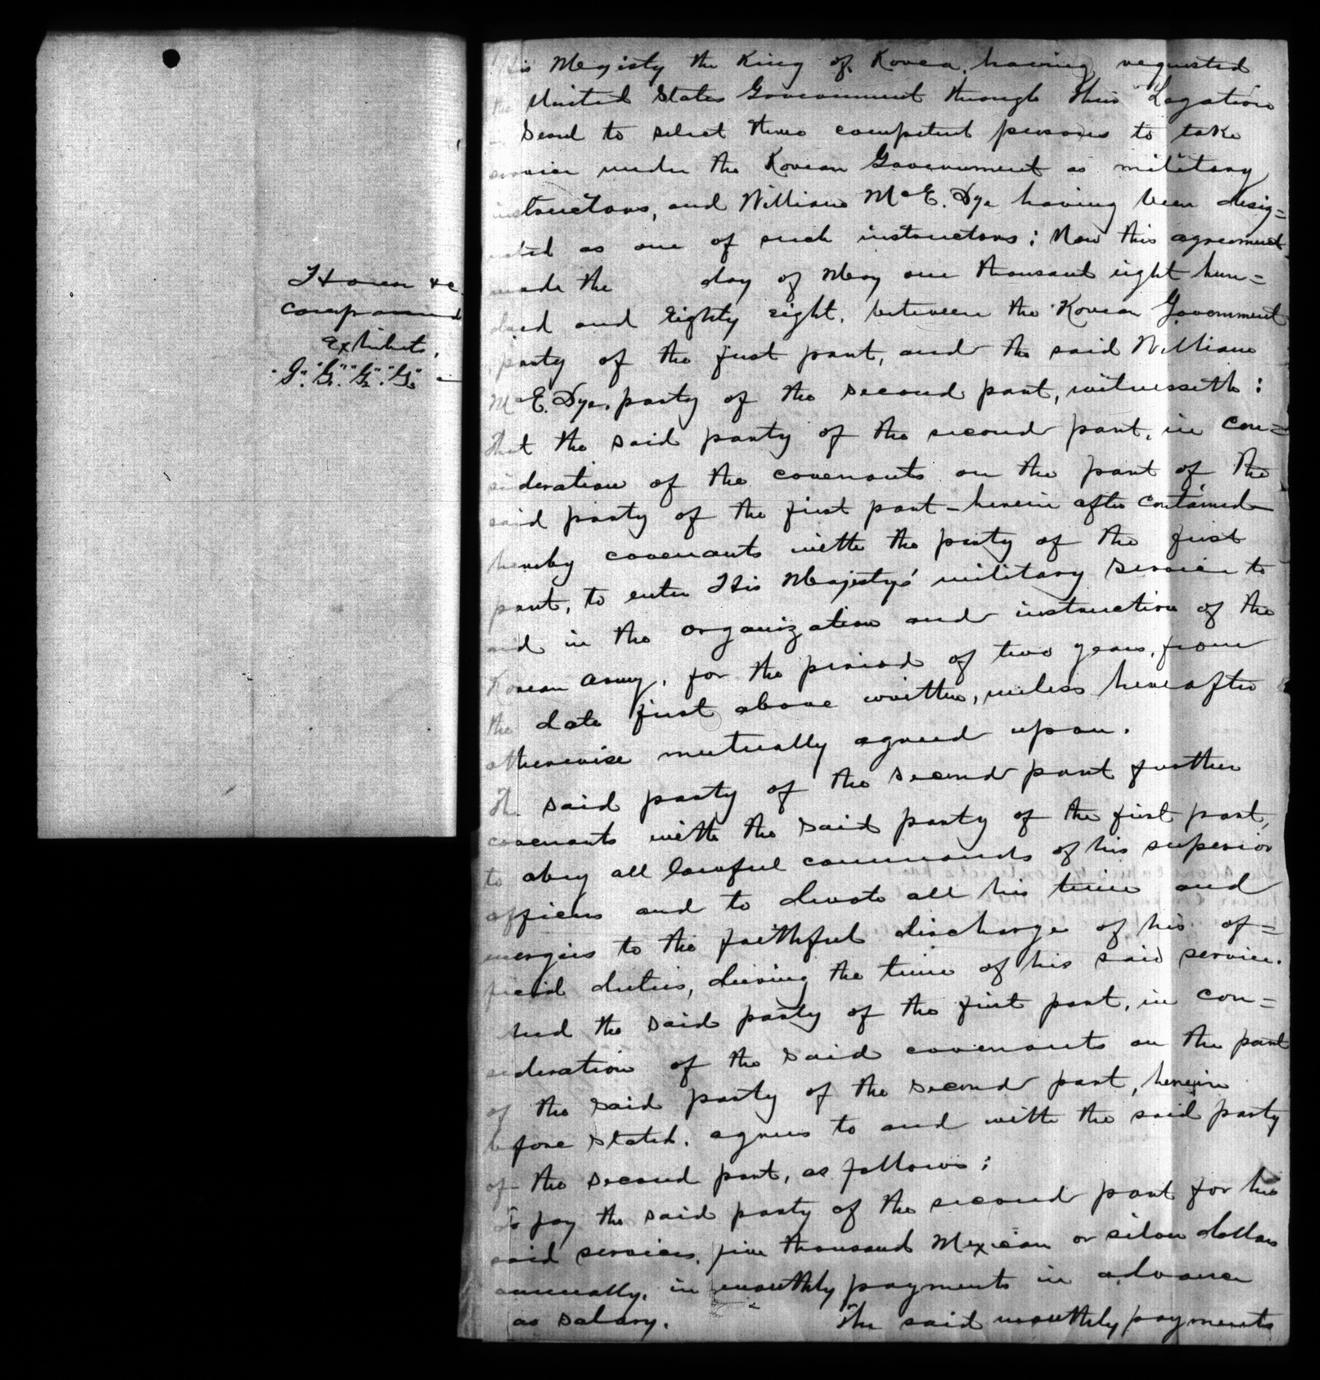 I have &c
compared
Exhibits,
"G." "G." "G." "G."
His Majesty the King of Korea, having requested
the United States Government through their Legation
Seoul to select three competent persons to take
service under the Korean Government as military
instructors, and William McE. Dye having been desig=
nated as one of such instructors: Now this agreement
made the day of May one thousand eight hun=
dred and Eighty eight, between the Korean Government
party of the first part, and the said William
McE. Dye, party of the second part, witnesseth:
That the said party of the second part, in con=
sideration of the covenants on the part of the
said party of the first part - herein after contained -
hereby covenants with the party of the first
part, to enter His Majesty's military service to
aid in the organization and instruction of the
Korean Army, for the period of two years, from
the date first above written, unless hereafter
otherwise mutually agreed upon.
The said party of the second part further
covenants with the said party of the first part,
to obey all lawful commands of his superior
officers and to devote all his time and
energies to the faithful discharge of his of=
ficial duties, during the time of his said service.
And the said party of the first part, in con=
sideration of the said covenants on the part
of the said party of the second part, herein
before stated, agrees to and with the said party
of the second part, as follows:
To pay the said party of the second part for his
said services, five thousand Mexican or silver dollars
annually, in monthly payments in advance
as salary. The said monthly payments